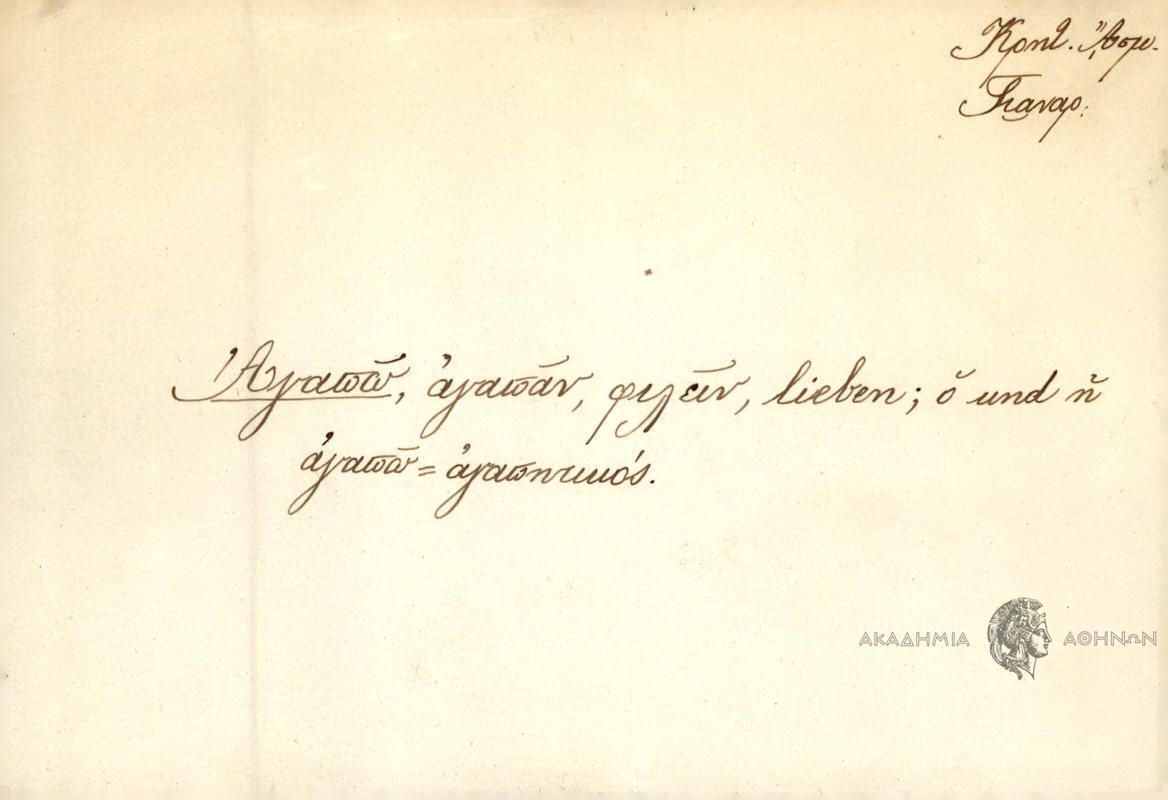 Κρητ. Ἄσμ.
Γιαναρ.
Ἀγαπῶ, ἀγαπᾶν, φιλεῖν, lieben; ὅ und ἥ
ἀγαπῶ = ἀγαπητικός.
ΑΚΑΔΗΜΙΑ ΑΘΗΝΩΝ